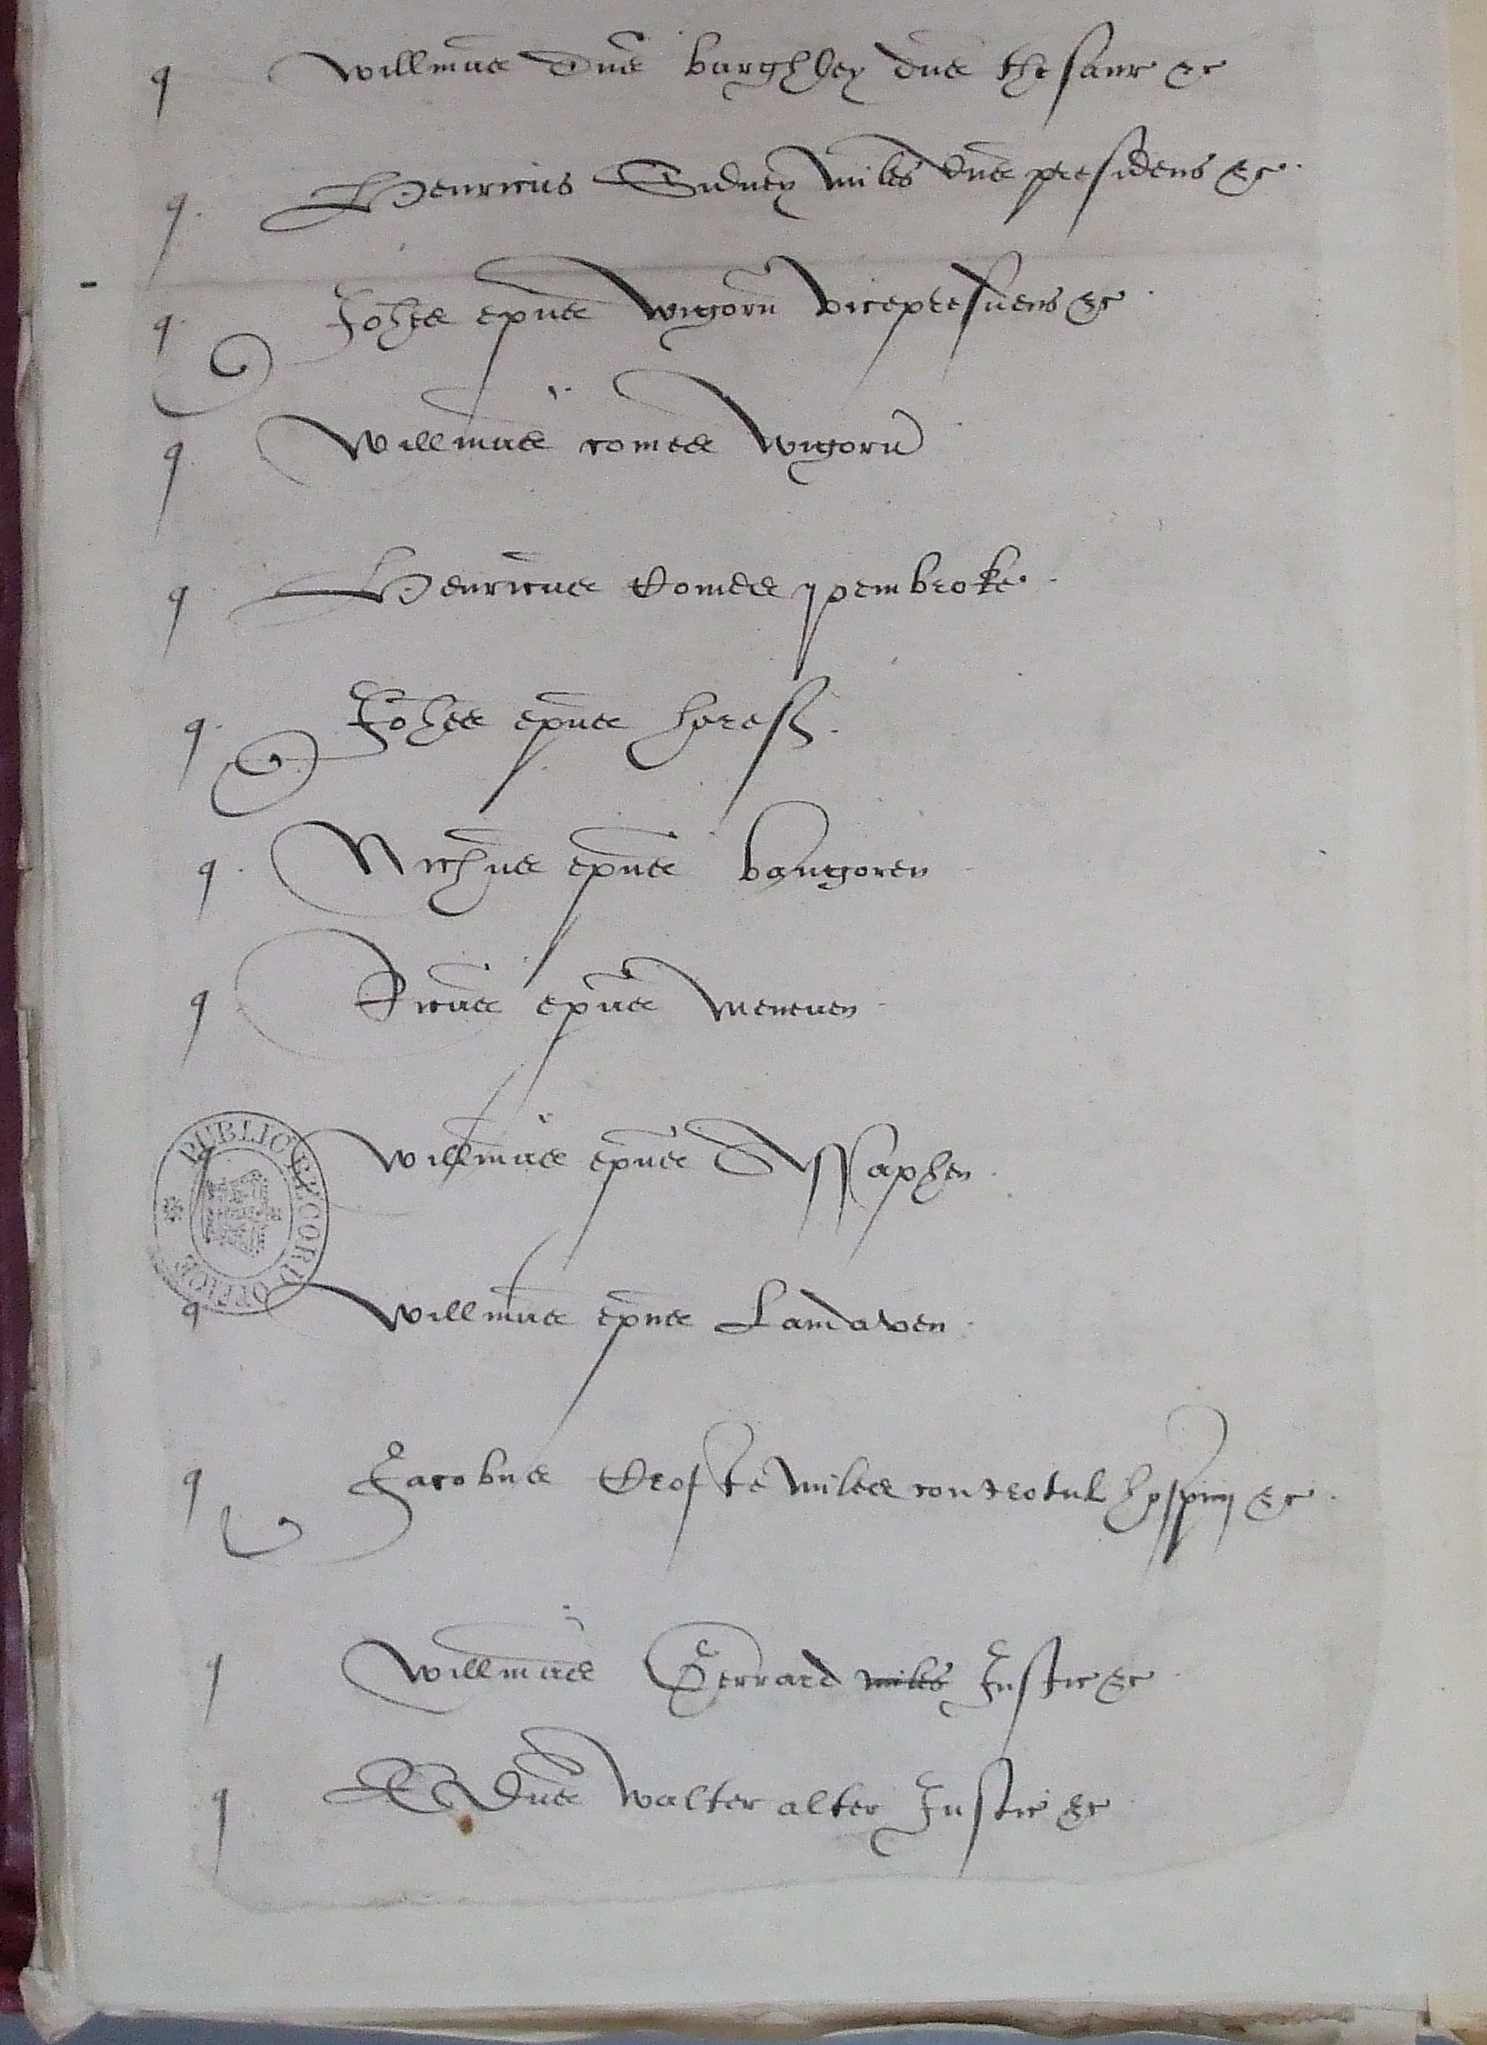 q Willm̃us Dñs Burghley dñs thesaur &c
q. Henricus Sidney miles dñs presidens &c.
q. Joħes ep̃us Wigorn̄ vicepresidens &c.
q Willm̃us comes Wigorn̄
q Henricus Comes pembroke.
q. Joħes ep̃us heref.
q. Nich̃us ep̃us bangoren
q Ricũs ep̃us meneuen
Willm̃us ep̃us Assaphen
PUBLIC RECORD OFFICE
q Willm̃us ep̃us Landaven
q Jacobus Crofte miles controtul hospicij &c.
q Willm̃us Gerrard miles Justic &c
q Edr̃us Walter alter Justic &c